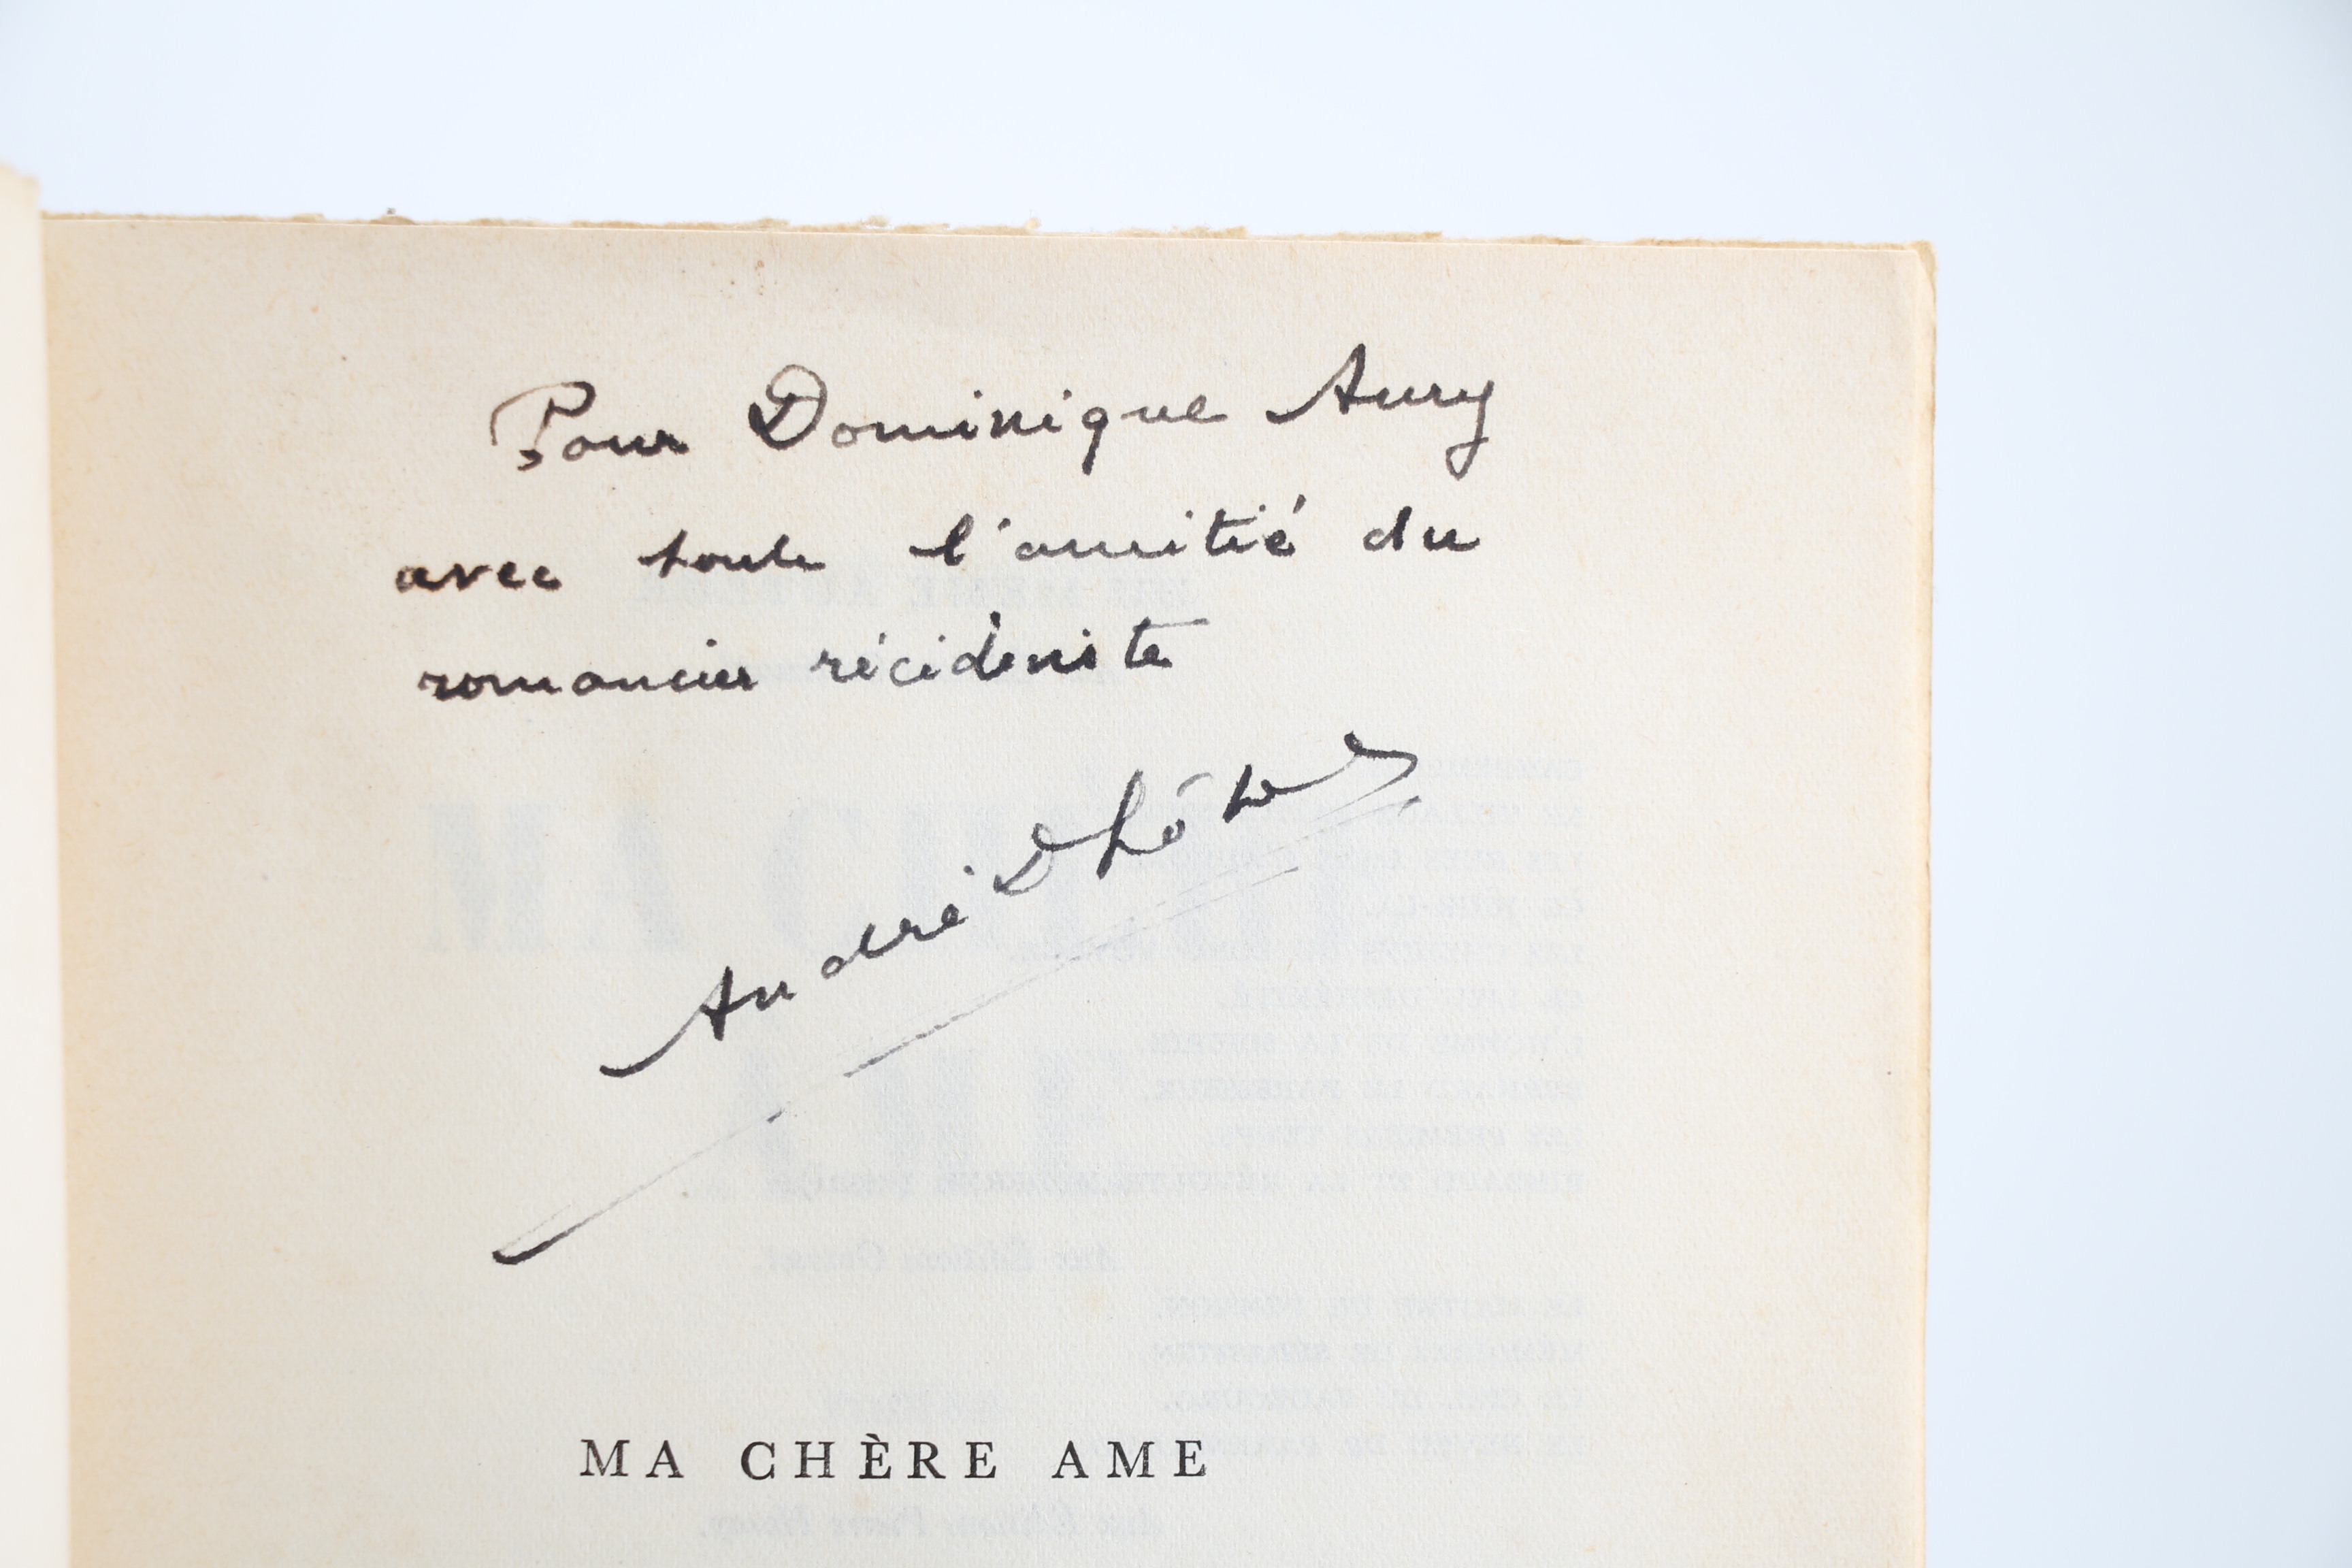 Pour Dominique Aury
avec toute l'amitié du
romancier récidiviste
André Dhôtel
MA CHÈRE AME